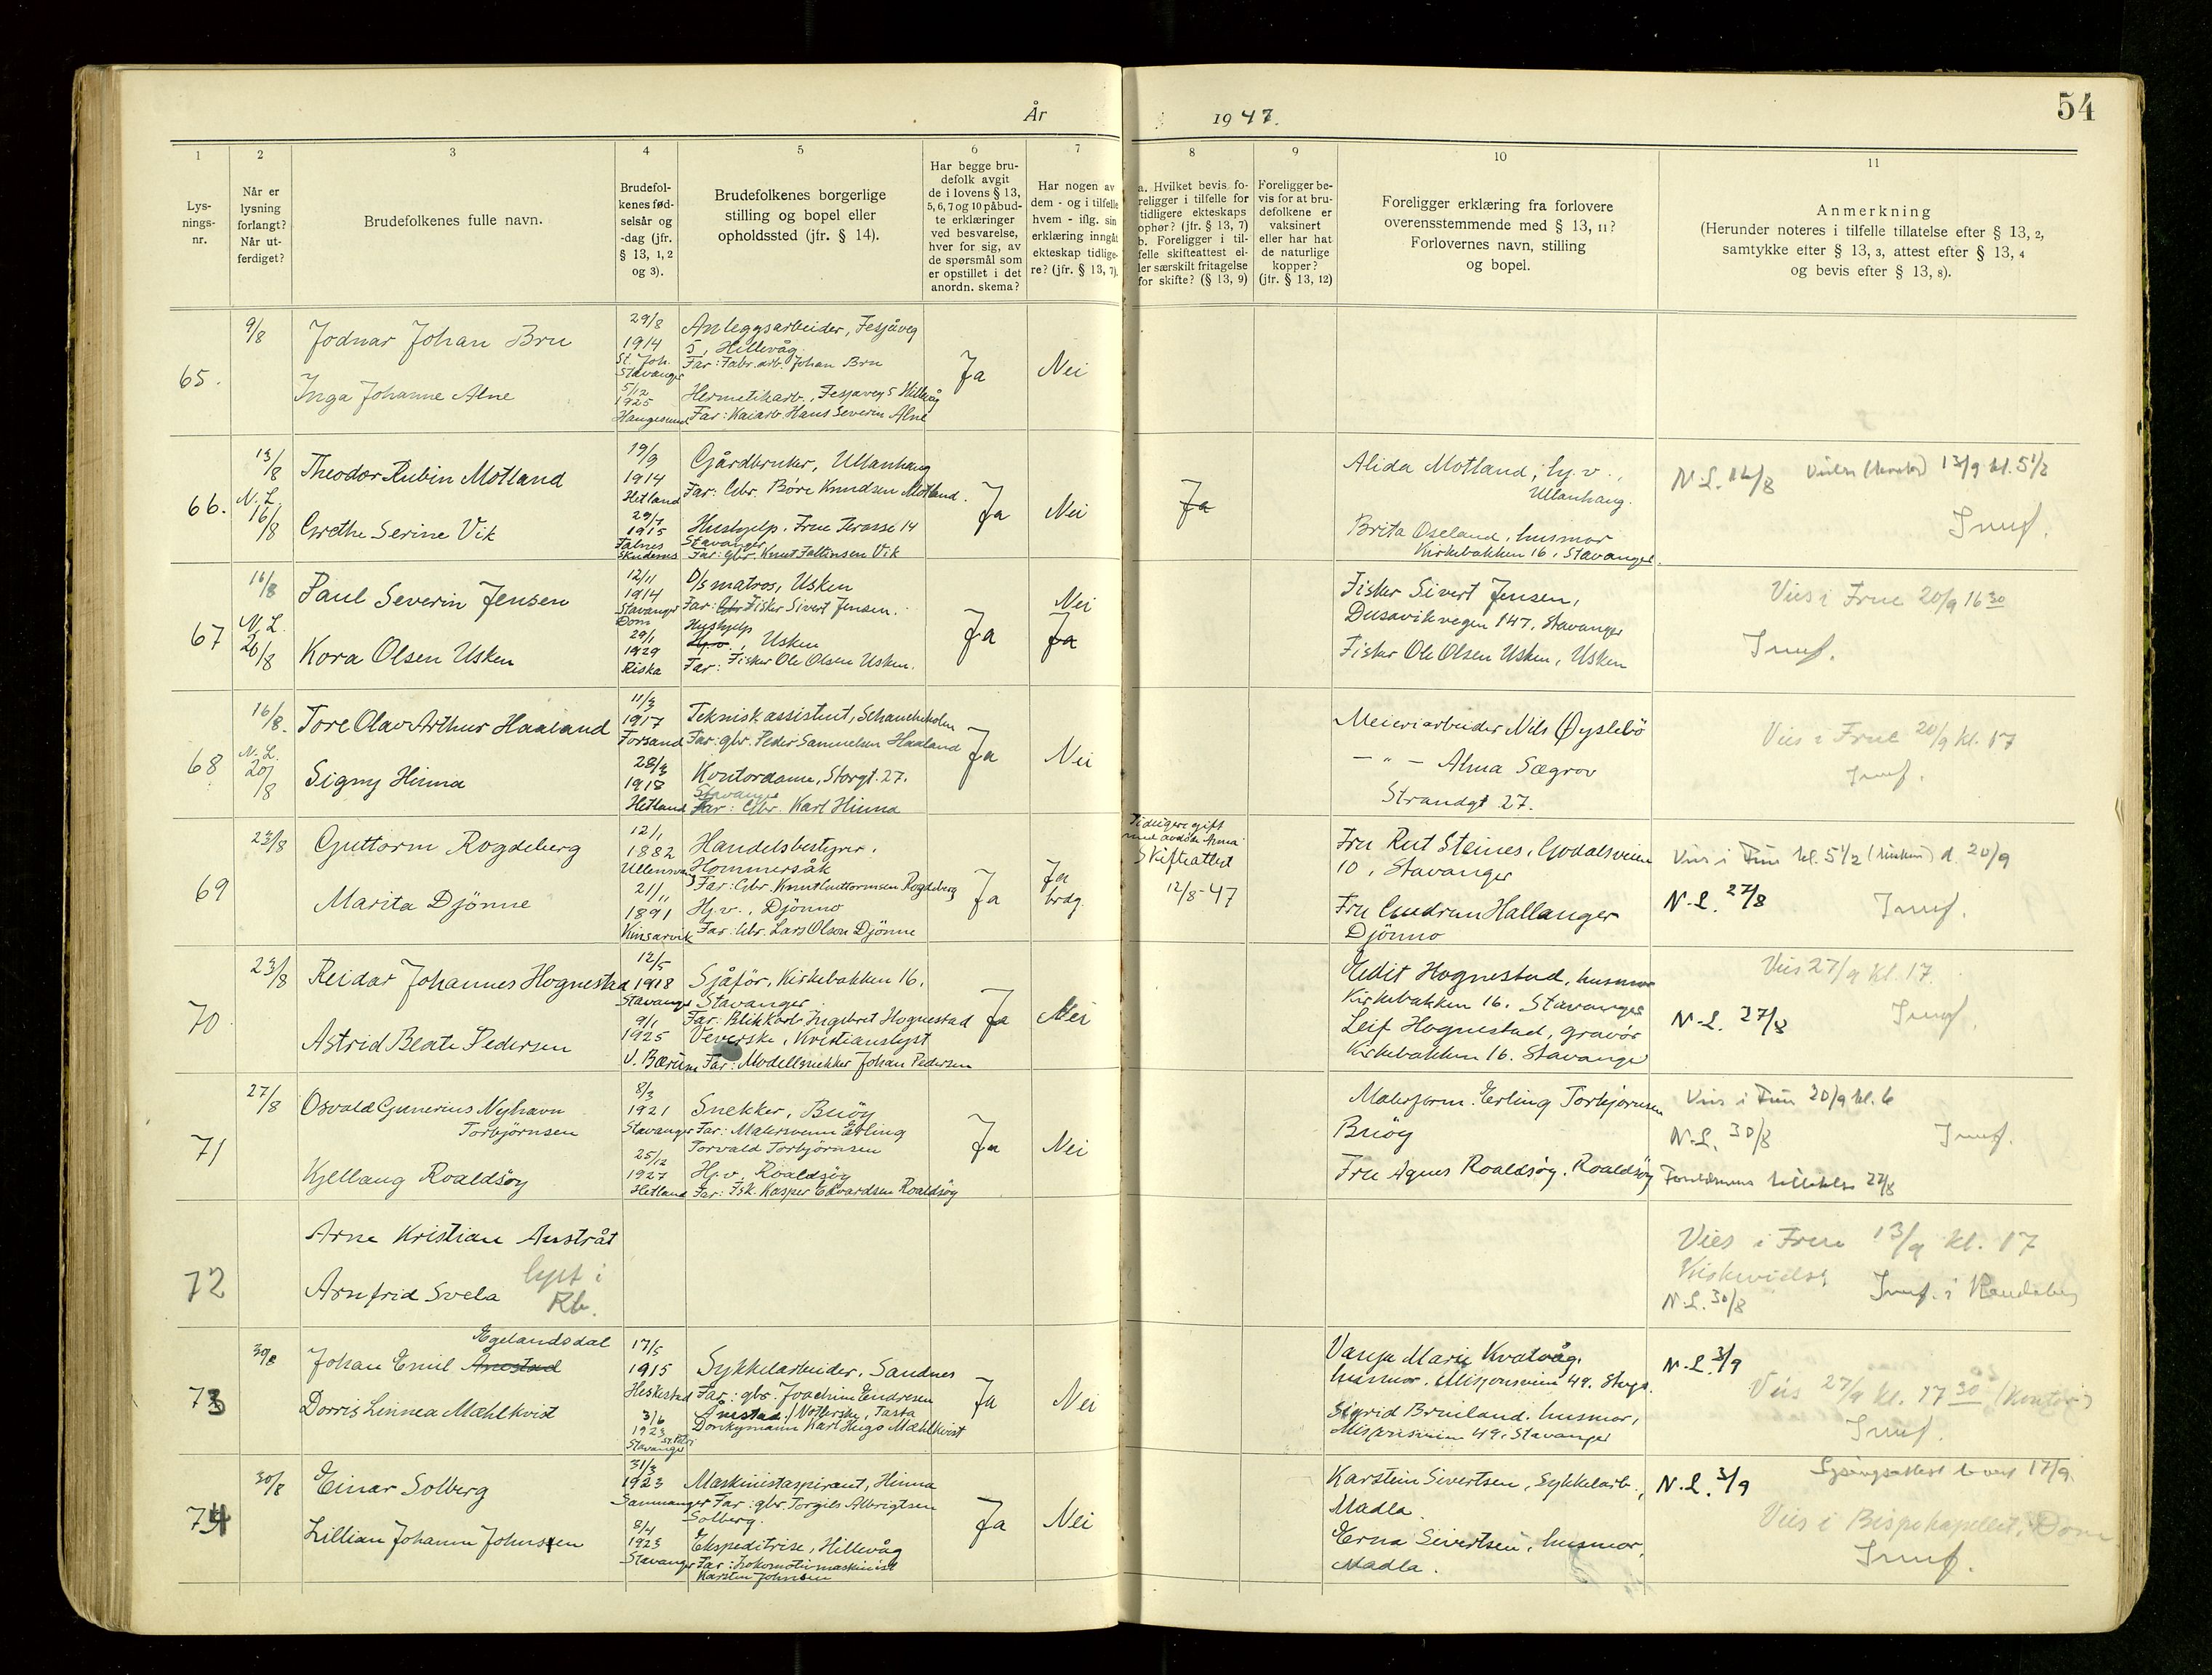 År 1947.
54
1
2
3
4
5
6
7
8
9
10
11
Lys-
nings-
nr.
Når er
lysning
forlangt?
Når ut-
ferdiget?
Brudefolkenes fulle navn.
Brudefol-
kenes fød-
selsår og
-dag (jfr.
§ 13, 1, 2
og 3).
Brudefolkenes borgerlige
stilling og bopel eller
opholdssted (jfr. § 14).
Har begge bru-
defolk avgit
de i lovens § 13,
5, 6, 7 og 10 påbud-
te erklæringer
ved besvarelse,
hver for sig, av
de spørsmål som
er opstillet i det
anordn. skema?
Har nogen av
dem - og i tilfelle
hvem - iflg. sin
erklæring inngåt
ekteskap tidlige-
re? (jfr. § 13, 7).
a. Hvilket bevis fo-
religger i tilfelle for
tidligere ekteskaps
ophør? (jfr. § 13, 7)
b. Foreligger i til-
felle skifteattest el-
ler særskilt fritagelse
for skifte? (§ 13, 9)
Foreligger be-
vis for at bru-
defolkene er
vaksinert
eller har hat
de naturlige
kopper?
(jfr. § 13, 12)
Foreligger erklæring fra forlovere
overensstemmende med § 13, 11?
Forlovernes navn, stilling
og bopel.
Anmerkning
(Herunder noteres i tilfelle tillatelse efter § 13, 2,
samtykke efter § 13, 3, attest efter § 13, 4
og bevis efter § 13, 8).
65.
9/8
Jodnar Johan Bru
Inga Johanne Alne
29/8
1914
St. Joh.
Stavanger
5/12
1925
Haugesund
Anleggsarbeider, Fesjåveg
5, Hillevåg
Far: Fabr.arb. Johan Bru
Hermetikarb., Fesjåveg 5 Hillevåg
Far: Kaiarb. Hans Severin Alne
Ja
Nei
66.
13/8
N.L.
16/8
Theodor Rubin Motland
Grethe Serine Vik
19/9
1914
Hetland
29/7
1915
Falnes
Skudenes
Gårdbruker, Ullanhaug
Far: Gbr. Böre Knudsen Motland.
Hushjelp. Frue Terasse 14
Stavanger
Far: gbr. Knut Faltinsen Vik
Ja
Nei
Ja
Alida Motland, hj.v.,
Ullanhaug.
Brita Oseland, husmor
Kirkebakken 16, Stavanger.
N.L. 16/8
13/9 kl. 5 1/2
Innf.
67
16/8
N.L.
20/8
Paul Severin Jensen
Kora Olsen Usken
12/11
1914
Stavanger
Dom
29/1
1929
Riska
D/s matros, Usken
Far: Gbr Fisker Sivert Jensen.
Hushjelp
Hj.v., Usken
Far: Fisker Ole Olsen Usken.
Ja
Nei
Ja
Fisker Sivert Jensen,
Dusavikvegen 147, Stavanger
Fisker Ole Olsen Usken, Usken
Vies i Frue 20/9 16 30
Innf.
68
16/8.
N.L.
20/8
Tore Olav Arthur Haaland
Signy Hinna
11/3
1917
Forsand
28/3
1918
Hetland
Teknisk assistent, Schancheholen
Far: gbr. Peder Samuelsen Haaland
Kontordame, Storgt. 27.
Stavanger
Far: Gbr. Karl Hinna
Ja
Nei
Meieriarbeider Nils Øyslebö
— " — Alma Sægrov
Strandgt 27.
Vies i Frue 20/9 kl. 17
Innf.
69
23/8
Guttorm Rogdeberg
Marita Djönne
12/1
1882
Ullensvang
21/11
1891
Kinsarvik
Handelsbestyrer.
Hommersåk
Far: Gbr. Knut Guttormsen Rogdeberg
Hj.v., Djönno
Far: Gbr. Lars Olson Djönne
Ja
Ja
brdg.
Tidligere gift
med avdöde Anna
Skifteattest
12/8-47
Fru Rut Steines, Godalsveien
10, Stavanger
Fru Gudrun Hallanger
Djönno
Vies i Frue kl. 5 1/2 d. 20/9
N.L. 27/8
Innf.
70
23/8
Reidar Johannes Hognestad
Astrid Beate Pedersen
12/5
1918
Stavanger
9/1
1925
V. Bærum
Sjåför, Kirkebakken 16,
Stavanger
Far: Blikkarb. Ingebret Hognestad
Veverske, Kristianslyst
Far: Modellsnekker Johan Pedersen
Ja
Nei
Edit Hognestad, husmor
Kirkebakken 16. Stavanger
Leif Hognestad, gravör
Kirkebakken 16. Stavanger
Vies 27/9 kl. 17.
N.L. 27/8
Innf.
71
27/8
Osvald Gunerius Nyhavn
Torbjörnsen
Kjellaug Roaldsöy
8/3
1921
Stavanger
25/12
1927
Hetland
Snekker, Buöy
Far: Malersvenn Erling
Torvald Torbjörnsen
Hj.v., Roaldsöy
Far: Fsk. Kasper Edvardsen Roaldsöy
Ja
Nei
Malerform. Erling Torbjörnsen
Buöy
Fru Agnes Roaldsöy. Roaldsöy
Vies i Frue 20/9 kl. 6
N.L. 30/8
Innf.
Foreldrenes tillatelse 27/8
72
Arne Kristian Austråt
Arnfrid Svela
lyst i
Rb.
Vies i Frue 13/9 kl. 17
N.L. 30/8
Innf. i Randaberg
73
30/8
Egelandsdal
Johan Emil Anestad
Dorris Linnea Mæhlkvist
17/5
1915
Heskestad
3/6
1923
St. Petri
Stavanger
Sykkelarbeider, Sandnes
Far: gbr. Joachim Endresen
Ånestad./ Notlerske, Tasta
Donkymann Karl Hugo Mæhlkvist
Ja
Nei
Vanja Marie Kvalvåg,
husmor, Misjonsveien 49. Stvgr.
Sigrid Bruiland, husmor,
Misjonsveien 49, Stavanger
N.L. 3/9
Vies 27/9 kl. 17 30 (Kontor)
Innf.
74
30/8
Einar Solberg
Lillian Johanne Johnsen
31/3
1923
Samnanger
8/4
1923
Stavanger
Maskinistaspirant, Hinna
Far: gbr. Torgils Albrigtsen
Solberg.
Ekspeditrise, Hillevåg
Far: Lokomotivmaskinist
Karsten Johnsen
Ja
Nei
Karstein Sivertsen, Sykkelarb.,
Madla.
Erna Sivertsen, husmor,
Madla.
N.L. 3/9
Lysningsattest 17/9.
Vies i Bispekapellet, Dom
Innf.